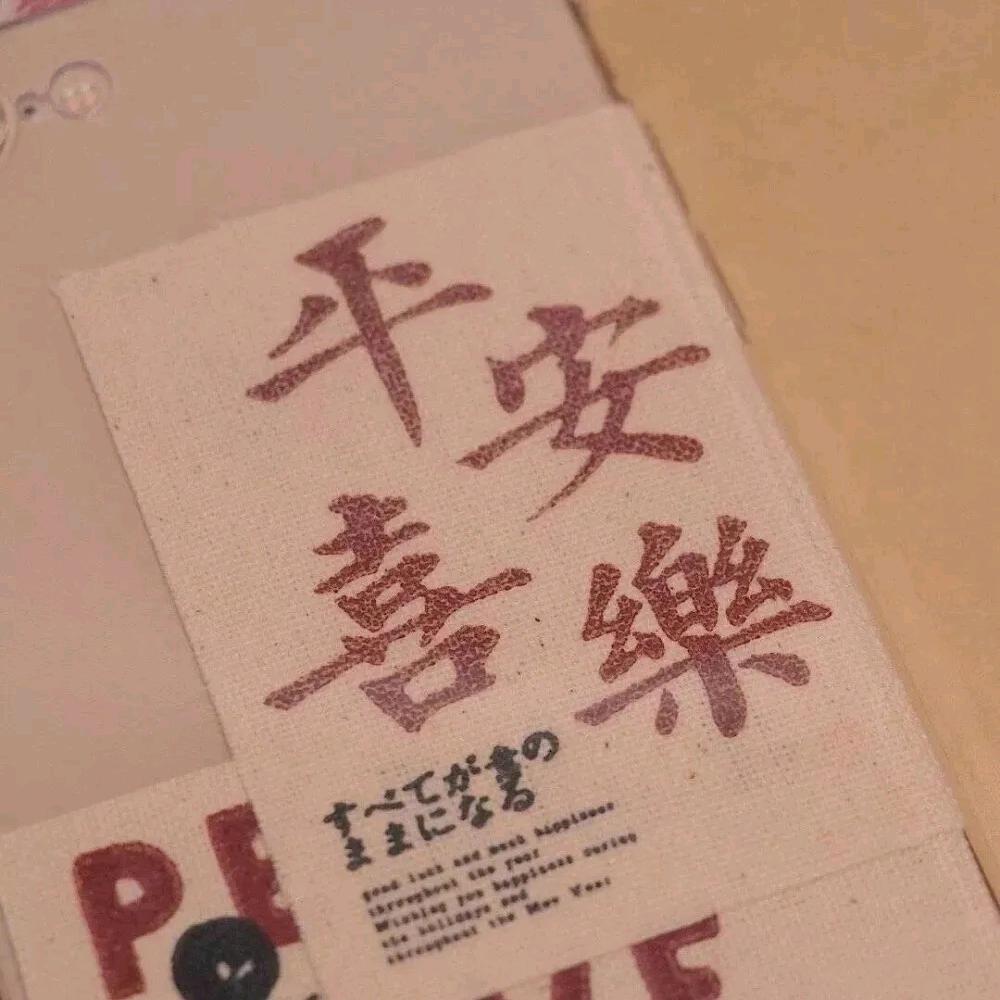 平安
喜樂
すべてが書の
ままになる
good luck and much happiness
throughout the year
Wishing you happiness during
the holidays and
throughout the New Year
PE
VE